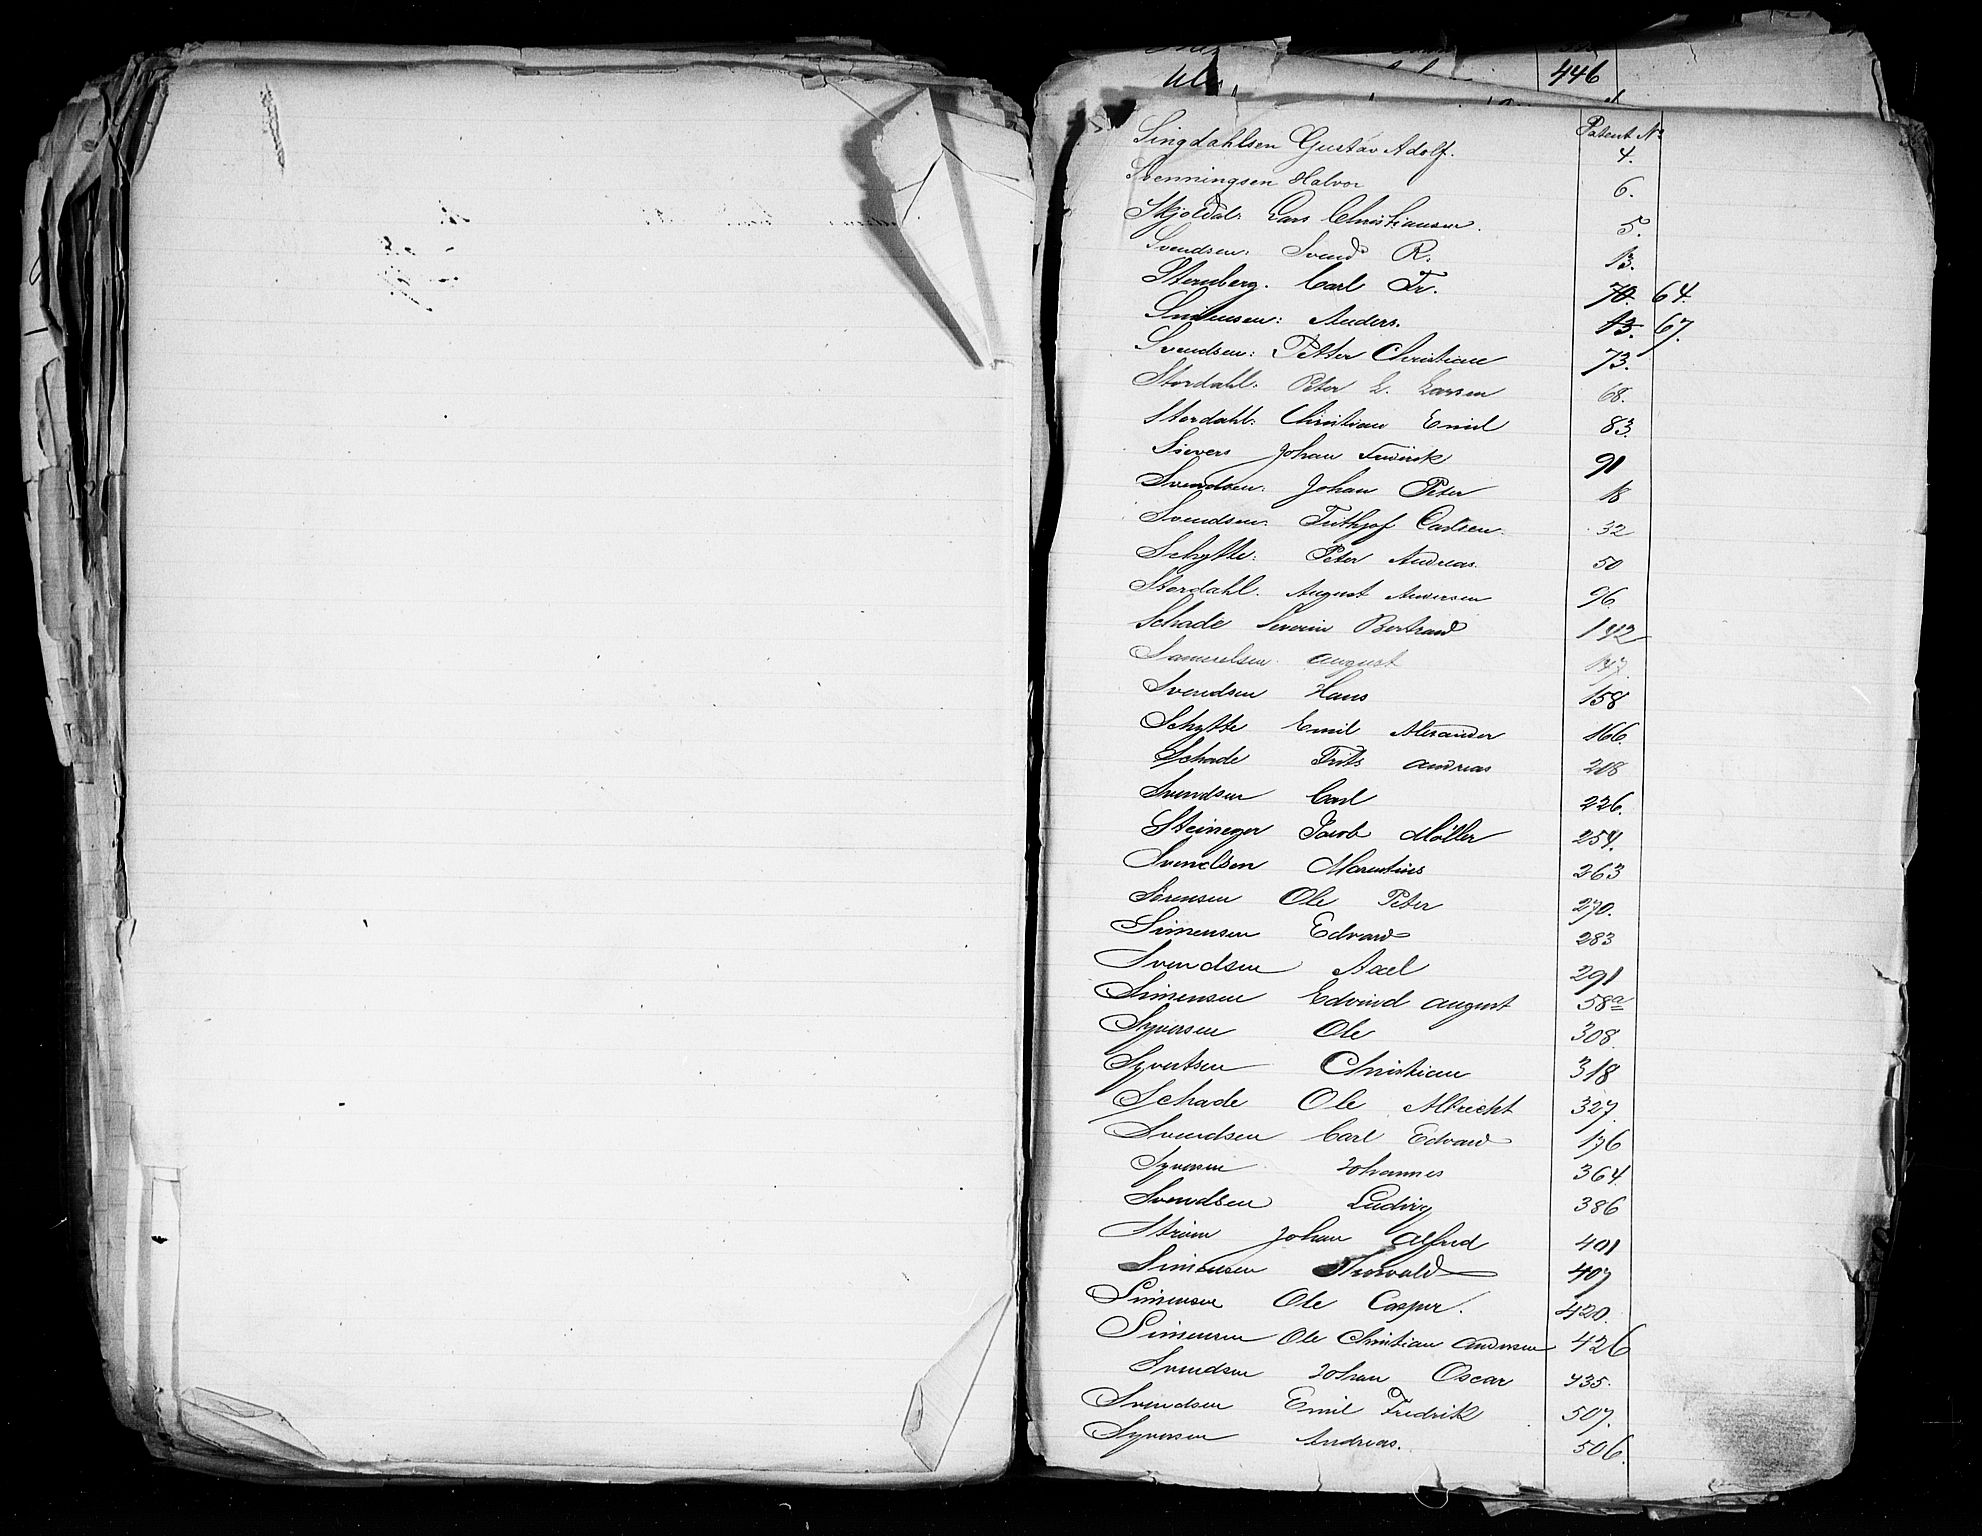 446
Patent No
Singdahlsen Gustav Adolf. 4.
Svenningsen Halvor 6.
Skjoldal: Lars Christiansen. 5.
Svendsen: Svend R. 13.
Sternberg. Carl Fr. 70. 64.
Simensen: Anders. 13. 67.
Svendsen: Petter Christian 73.
Stordahl: Peter L. Larsen 68.
Stordahl: Christian Emil 83.
Sievers Johan Fredrik 91
Svendsen: Johan Peter 18
Svendsen: Frithjof Carlsen. 32
Schytte: Peter Andreas. 50
Stordahl. August Andersen 96.
Schade Severin Bertrand 142
Samuelsen: August 147.
Svendsen Hans 158
Schytte Emil Alexander 166.
Schade Frits Andreas 218
Svendsen Carl 226.
Steineger Jacob Möller 254.
Svendsen Marentius 263
Sørensen Ole Peter 270.
Simensen Edvard 283
Svendsen Axel 291
Simensen Edvind August 58a
Syversen Ole 308.
Syvertsen Christian 318
Schade Ole Albrecht 327.
Svendsen Carl Edvard 176
Syversen Johannes 364.
Svendsen Ludvig 386
Strøm Johan Alfred 401
Simensen Thorvald 407
Simensen Ole Casper. 420.
Simensen Ole Christian Andersen 426
Svendsen Johan Oscar 435.
Svendsen Emil Fredrik 507.
Syversen Andreas. 506.